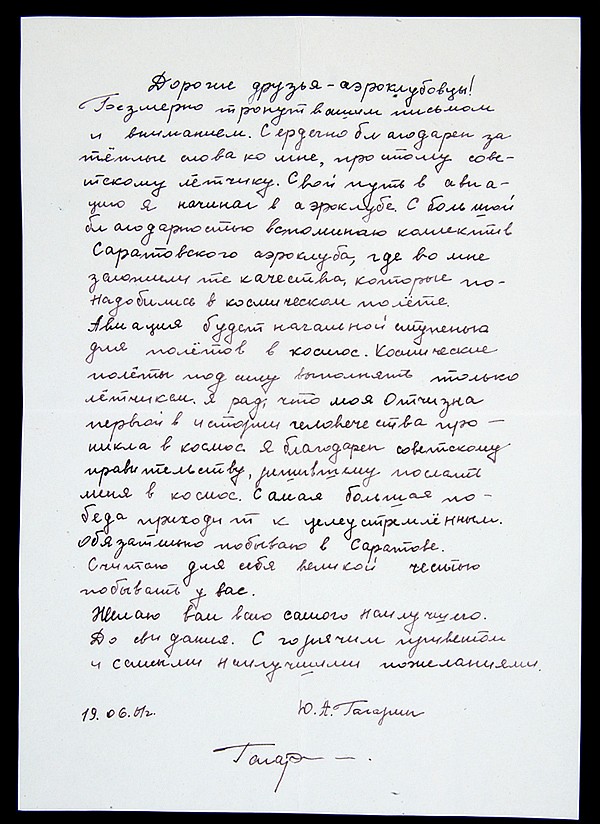 Дорогие друзья-аэроклубовцы!
Безмерно тронут вашим письмом
и вниманием. Сердечно благодарен за
тёплые слова ко мне, простому сове-
тскому лётчику. Свой путь в авиа-
цию я начинал в аэроклубе. С большой
благодарностью вспоминаю коллектив
Саратовского аэроклуба, где во мне
заложили те качества, которые по-
надобились в космическом полёте.
Авиация будет начальной ступенью
для полётов в космос. Космические
полёты под силу выполнять только
лётчикам. Я рад, что моя Отчизна
первой в истории человечества про-
никла в космос. Я благодарен советскому
правительству, решившему послать
меня в космос. Самая большая по-
беда приходит к целеустремлённым.
Обязательно побываю в Саратове.
Считаю для себя великой честью
побывать у вас.
Желаю вам всего самого наилучшего.
До свидания. С горячим приветом
и самыми наилучшими пожеланиями.
19.06.61г. Ю.А. Гагарин
Гагар